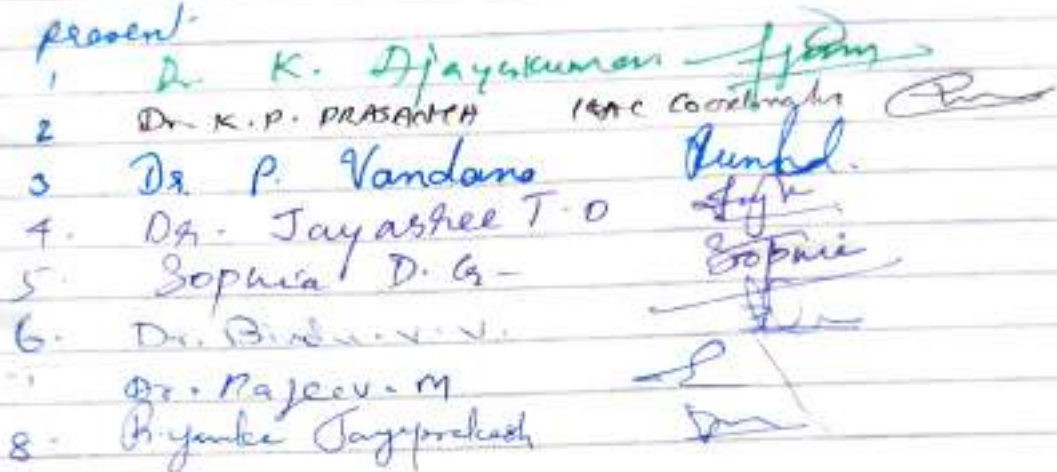 present
1 Dr. K. Ajayakumar
2 Dr. K.P. PRASANTH IQAC Coordinator
3 Dr P. Vandana
4. Dr. Jayashree T.O
5. Sophia D. G - Sophia
6. Dr. Bindu. V. V.
Dr. Rajeev. M
8. Priyanka Jayaprakash